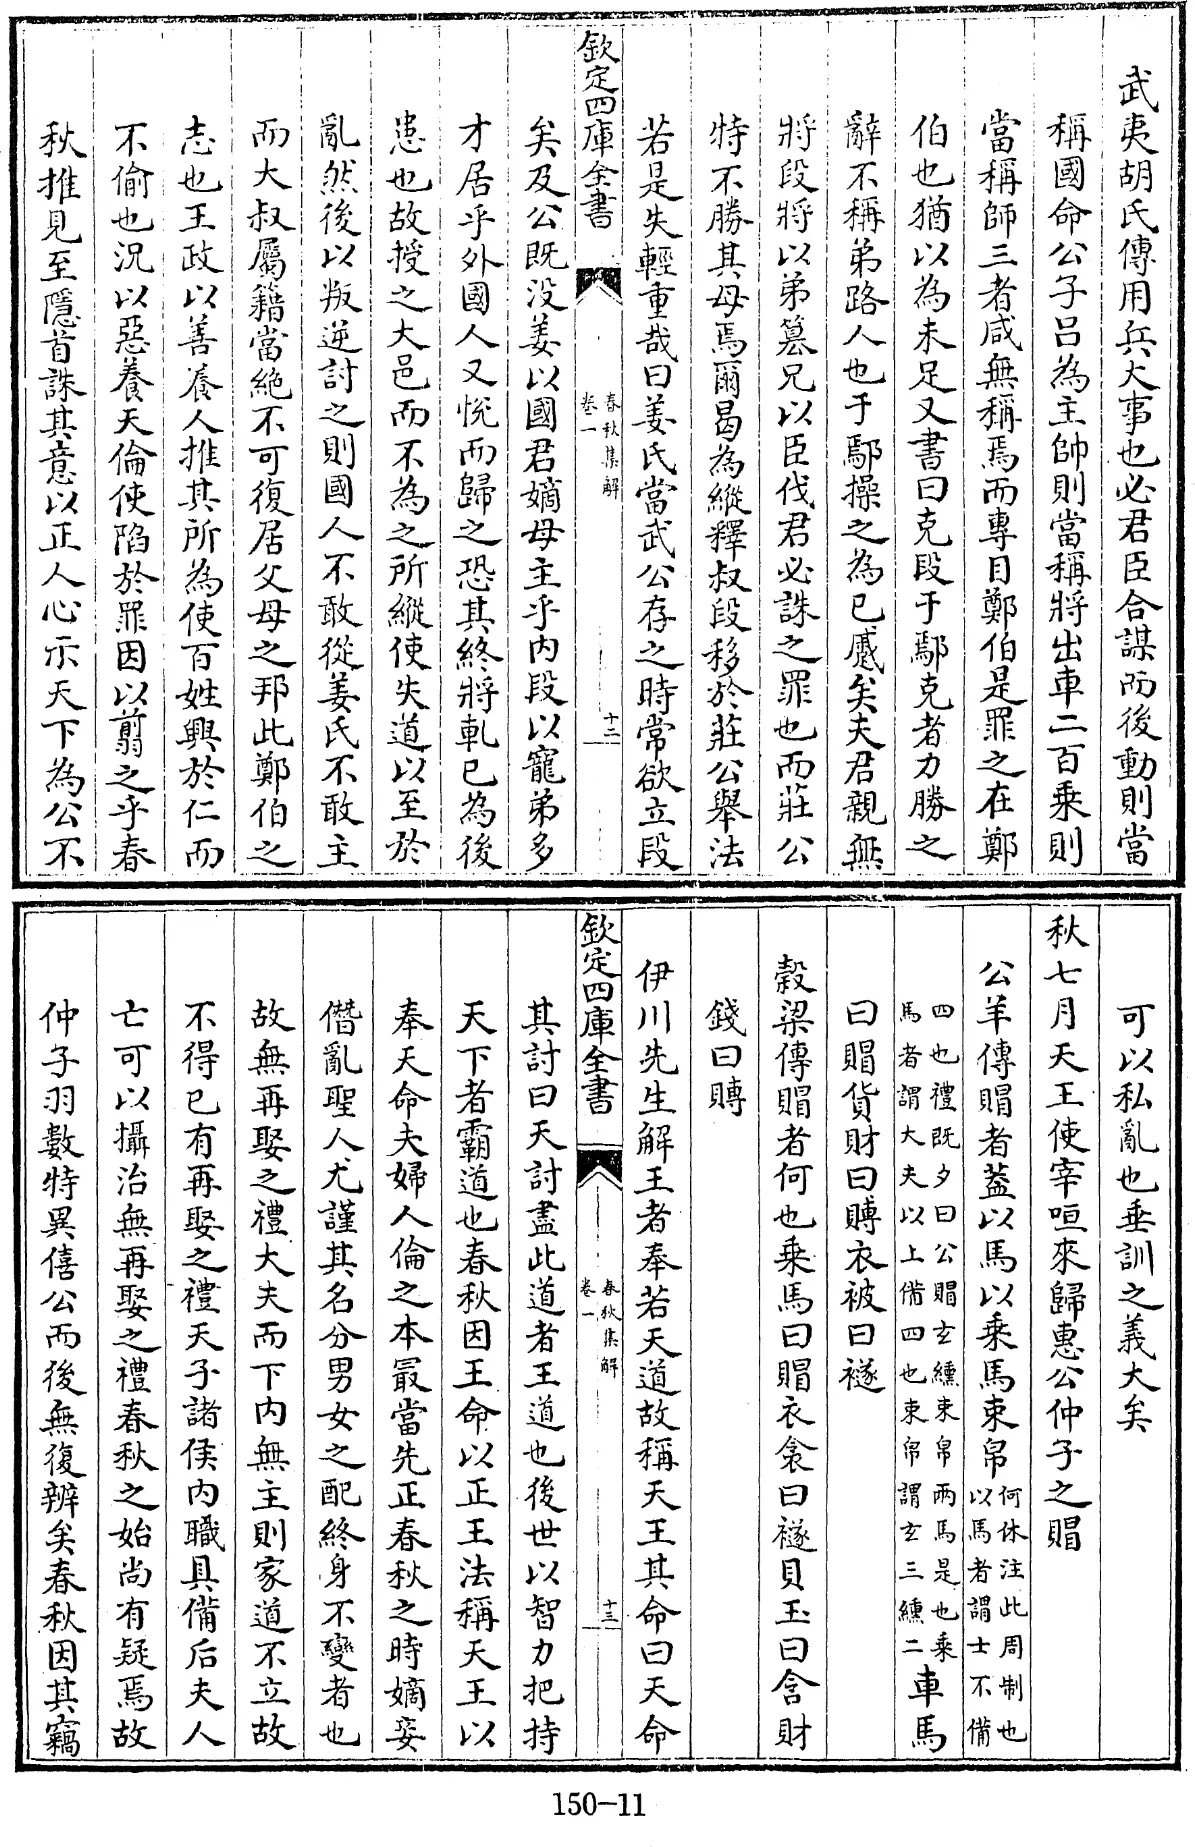 武夷胡氏傳用兵大事也必君臣合謀而後動則當
稱國命公子呂為主帥則當稱將出車二百乘則
當稱師三者咸無稱焉而專目鄭伯是罪之在鄭
伯也猶以為未足又書曰克段于鄢克者力勝之
辭不稱弟路人也于鄢操之為已蹙矣夫君親無
將段將以弟篡兄以臣伐君必誅之罪也而莊公
特不勝其母焉爾曷為縱釋叔段移於莊公舉法
若是失輕重哉曰姜氏當武公存之時常欲立段
欽定四庫全書
春秋集解
卷一
十二
矣及公既没姜以國君嫡母主乎内段以寵弟多
才居乎外國人又悅而歸之恐其終將軋已為後
患也故授之大邑而不為之所縱使失道以至於
亂然後以叛逆討之則國人不敢從姜氏不敢主
而大叔屬籍當絶不可復居父母之邦此鄭伯之
志也王政以善養人推其所為使百姓興於仁而
不偷也況以惡養天倫使陷於罪因以翦之乎春
秋推見至隱首誅其意以正人心示天下為公不
可以私亂也垂訓之義大矣
秋七月天王使宰咺來歸惠公仲子之賵
公羊傳賵者蓋以馬以乘馬束帛
何休注此周制也
以馬者謂士不備
四也禮既夕曰公賵玄纁束帛兩馬是也乘
馬者謂大夫以上備四也束帛謂玄三纁二
車馬
曰賵貨財曰賻衣被曰襚
穀梁傳賵者何也乘馬曰賵衣衾曰襚貝玉曰含財
錢曰賻
伊川先生解王者奉若天道故稱天王其命曰天命
欽定四庫全書
春秋集解
卷一
十三
其討曰天討盡此道者王道也後世以智力把持
天下者霸道也春秋因王命以正王法稱天王以
奉天命夫婦人倫之本最當先正春秋之時嫡妾
僭亂聖人尤謹其名分男女之配終身不變者也
故無再娶之禮大夫而下内無主則家道不立故
不得已有再娶之禮天子諸侯内職具備后夫人
亡可以攝治無再娶之禮春秋之始尚有疑焉故
仲子羽數特異僖公而後無復辨矣春秋因其竊
150-11